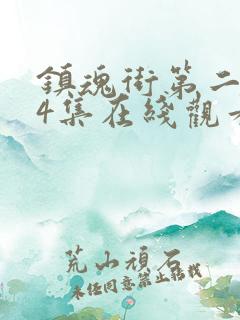 鎮魂街第二
4集在綫觀
荒山頑石
未经同意禁止转载